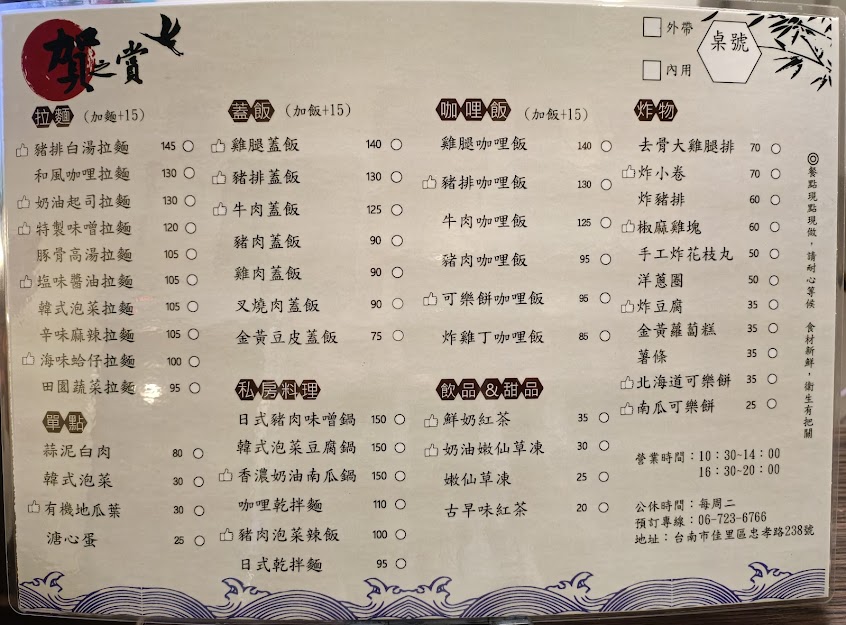 賀之賞
外帶
內用
桌號
拉麵 (加麵+15)
豬排白湯拉麵 145
和風咖哩拉麵 130
奶油起司拉麵 130
特製味噌拉麵 120
豚骨高湯拉麵 105
塩味醬油拉麵 105
韓式泡菜拉麵 105
辛味麻辣拉麵 105
海味蛤仔拉麵 100
田園蔬菜拉麵 95
單點
蒜泥白肉 80
韓式泡菜 30
有機地瓜葉 30
溏心蛋 25
蓋飯 (加飯+15)
雞腿蓋飯 140
豬排蓋飯 130
牛肉蓋飯 125
豬肉蓋飯 90
雞肉蓋飯 90
叉燒肉蓋飯 90
金黃豆皮蓋飯 75
私房料理
日式豬肉味噌鍋 150
韓式泡菜豆腐鍋 150
香濃奶油南瓜鍋 150
咖哩乾拌麵 110
豬肉泡菜辣飯 100
日式乾拌麵 95
咖哩飯 (加飯+15)
雞腿咖哩飯 140
豬排咖哩飯 130
牛肉咖哩飯 125
豬肉咖哩飯 95
可樂餅咖哩飯 95
炸雞丁咖哩飯 85
飲品&甜品
鮮奶紅茶 35
奶油嫩仙草凍 30
嫩仙草凍 25
古早味紅茶 20
炸物
去骨大雞腿排 70
炸小卷 70
炸豬排 60
椒麻雞塊 60
手工炸花枝丸 50
洋蔥圈 50
炸豆腐 35
金黃蘿蔔糕 35
薯條 35
北海道可樂餅 35
南瓜可樂餅 25
◎餐點現點現做，請耐心等候 食材新鮮，衛生有把關
營業時間：10：30~14：00
16：30~20：00
公休時間：每周二
預訂專線：06-723-6766
地址：台南市佳里區忠孝路238號